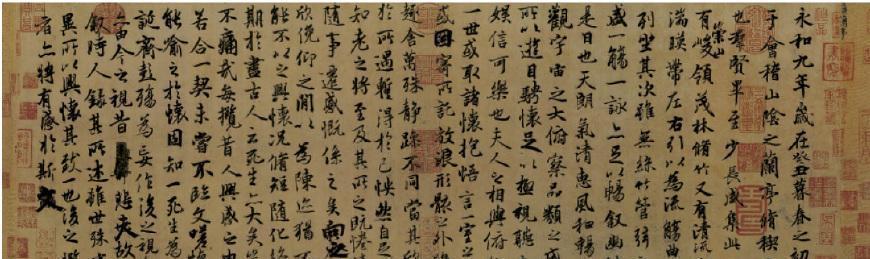 永和九年歲在癸丑暮春之初
于會稽山陰之蘭亭脩稧
也羣賢畢至少長咸集此
有崇山峻領茂林脩竹又有清流
湍暎帶左右引以為流觴曲
列坐其次雖無絲竹管弦
盛一觴一詠亦足以暢敘幽
是日也天朗氣清惠風和暢
觀宇宙之大俯察品類之
所以遊目騁懷足以極視聽
娛信可樂也夫人之相與俯
一世或取諸懷抱悟言一室之
或因寄所託放浪形骸之外
趣舍萬殊靜躁不同當其欣
於所遇蹔得於己怏然自足
知老之將至及其所之既惓
隨事遷感慨係之矣向之
欣俛仰之閒以為陳迹猶不
能不以之興懷況脩短隨化終
期於盡古人云死生亦大矣豈
不痛哉每攬昔人興感之由
若合一契未嘗不臨文嗟悼
能喻之於懷固知一死生為
誕齊彭殤為妄作後之視
亦由今之視昔悲夫故
敘時人錄其所述雖世殊
異所以興懷其致一也後之攬
者亦將有感於斯文